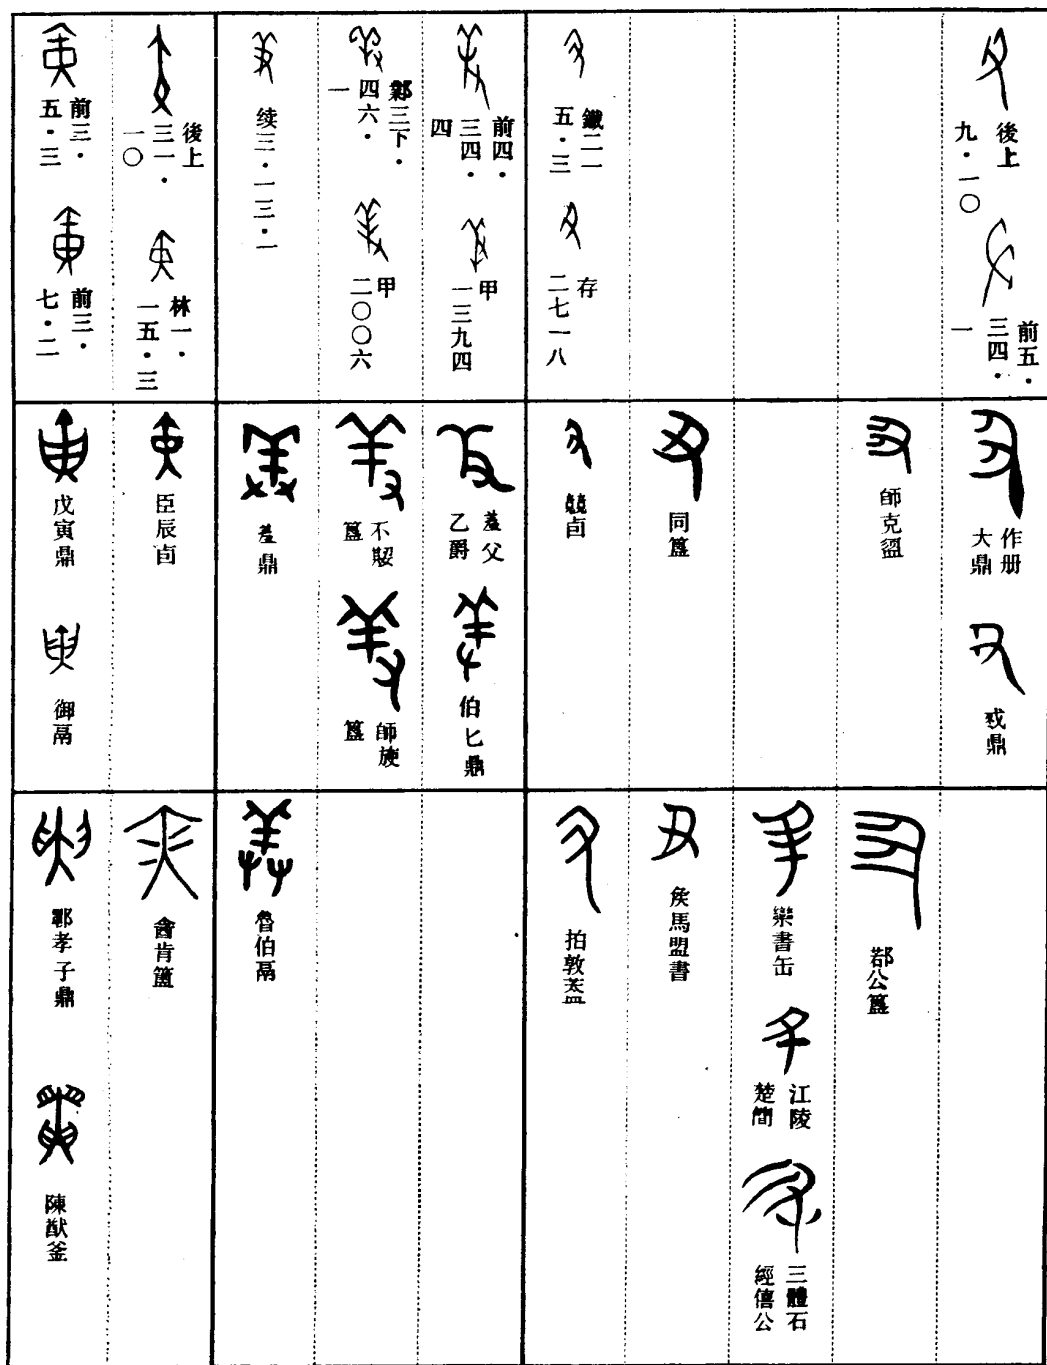 後上
九·一〇
前五·
三四·
一
鐵二一
五·三
存
二七一八
前四·
三四·
四
甲
一三九四
鄴三下·
四六·
一
甲
二〇〇六
续三·一三·一
後上
三一·
一〇
林一·
一五·三
前三·
五·三
前三·
七·二
作册
大鼎
戜鼎
師克盨
同簋
競卣
羞父
乙爵
伯匕鼎
不𡢁
簋
師𬀈
簋
羞鼎
臣辰卣
戊寅鼎
御鬲
鄀公簋
欒書缶
江陵
楚簡
三體石
經僖公
矦馬盟書
拍敦蓋
魯伯鬲
酓肯簠
鄲孝子鼎
陳猷釜